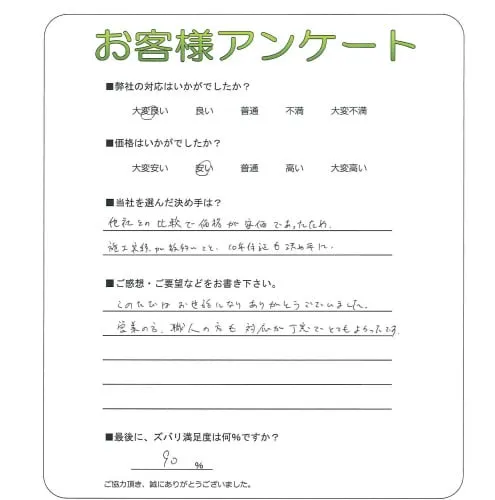 お客様アンケート
■弊社の対応はいかがでしたか？
大変良い 良い 普通 不満 大変不満
■価格はいかがでしたか？
大変安い 安い 普通 高い 大変高い
■当社を選んだ決め手は？
他社との比較で価格が安価であったため。
施工実績が数多いこと、10年保証も決め手に。
■ご感想・ご要望などをお書き下さい。
このたびはお世話になりありがとうございました。
営業の方、職人の方も対応が丁寧でとてもよかったです。
■最後に、ズバリ満足度は何%ですか？
90 %
ご協力頂き、誠にありがとうございました。